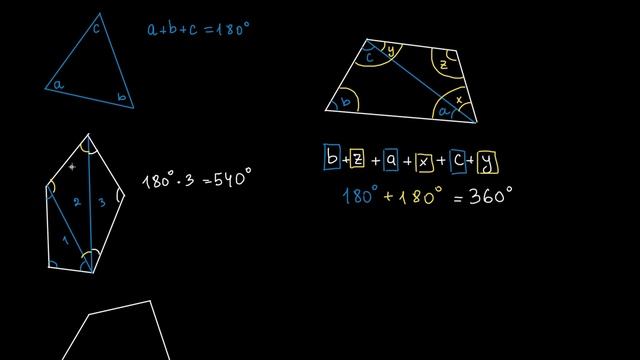 c
a
b
a+b+c=180°
c
y
z
b
a
x
b+z+a+x+c+y
180°+180°=360°
180°·3=540°
2
3
1